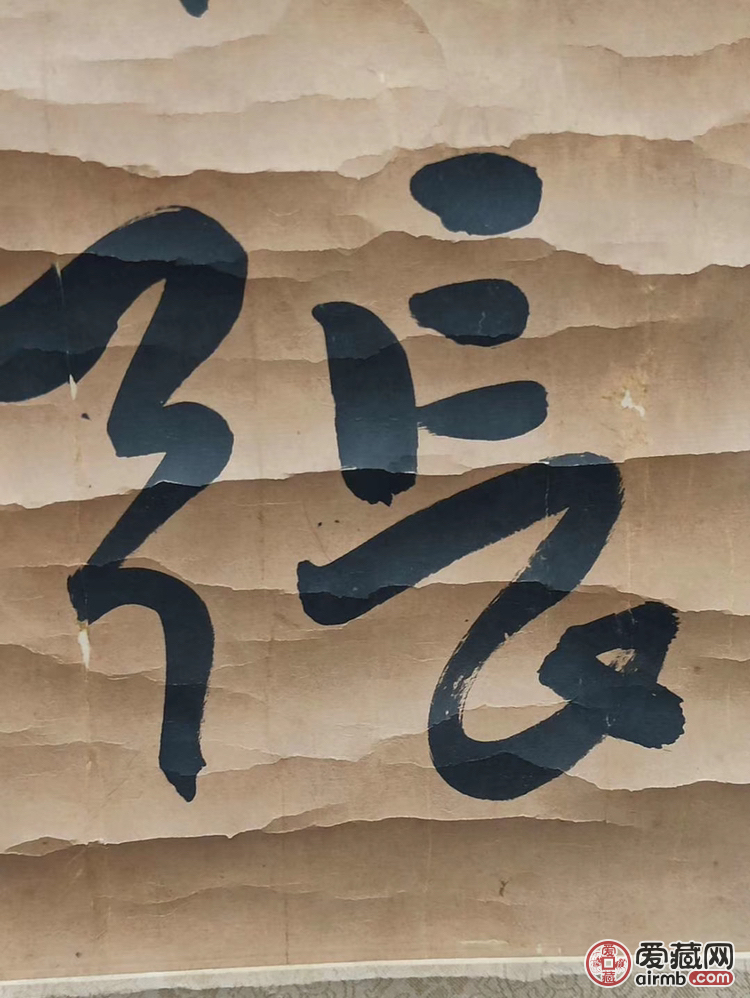 張
爱藏网
airmb.com